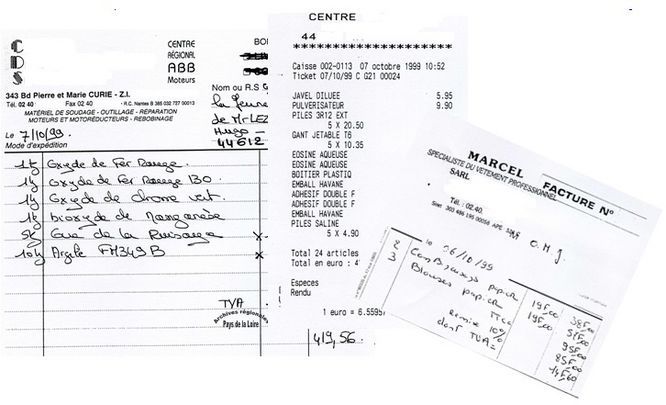 C
D
S
CENTRE
RÉGIONAL
ABB
Moteurs
343 Bd Pierre et Marie CURIE - Z.I.
Tél. 02 40 Fax 02 40 - R.C. Nantes B 385 032 727 00013
MATÉRIEL DE SOUDAGE - OUTILLAGE - RÉPARATION
MOTEURS ET MOTORÉDUCTEURS - REBOBINAGE
Le 7/10/99.
Mode d'expédition
BO
Nom ou R.S
la Jeune
de Mr LEZ
Hugo -
44612
Oxyde de Fer Rouge.
Oxyde de Fer Rouge 130
Oxyde de chrome vert.
bioxyde de Manganèse
de la
Argile FM349B
TVA
Archives régionales
Pays de la Loire
419,56.
CENTRE
44
******************************
Caisse 002-0113 07 octobre 1999 10:52
Ticket 07/10/99 C G21 00024
JAVEL DILUEE 5.95
PULVERISATEUR 9.90
PILES 3R12 EXT
5 X 20.50
GANT JETABLE T6
5 X 10.35
EOSINE AQUEUSE
EOSINE AQUEUSE
BOITIER PLASTIQ
EMBALL HAVANE
ADHESIF DOUBLE F
ADHESIF DOUBLE F
EMBALL HAVANE
PILES SALINE
5 X 4.90
Total 24 articles
Total en euro : 4
Especes
Rendu
1 euro = 6.5595
MARCEL
SPECIALISTE DU VETEMENT PROFESSIONNEL
SARL
FACTURE N°
Tél. : 02.40.
O.M.J.
le 06/10/99
2 papier 19F,00 38F,00
3 Blouses papier 19F,00 57F,00
TTC 95F,00
remise 10% 85F,00
dont TVA = 14F60